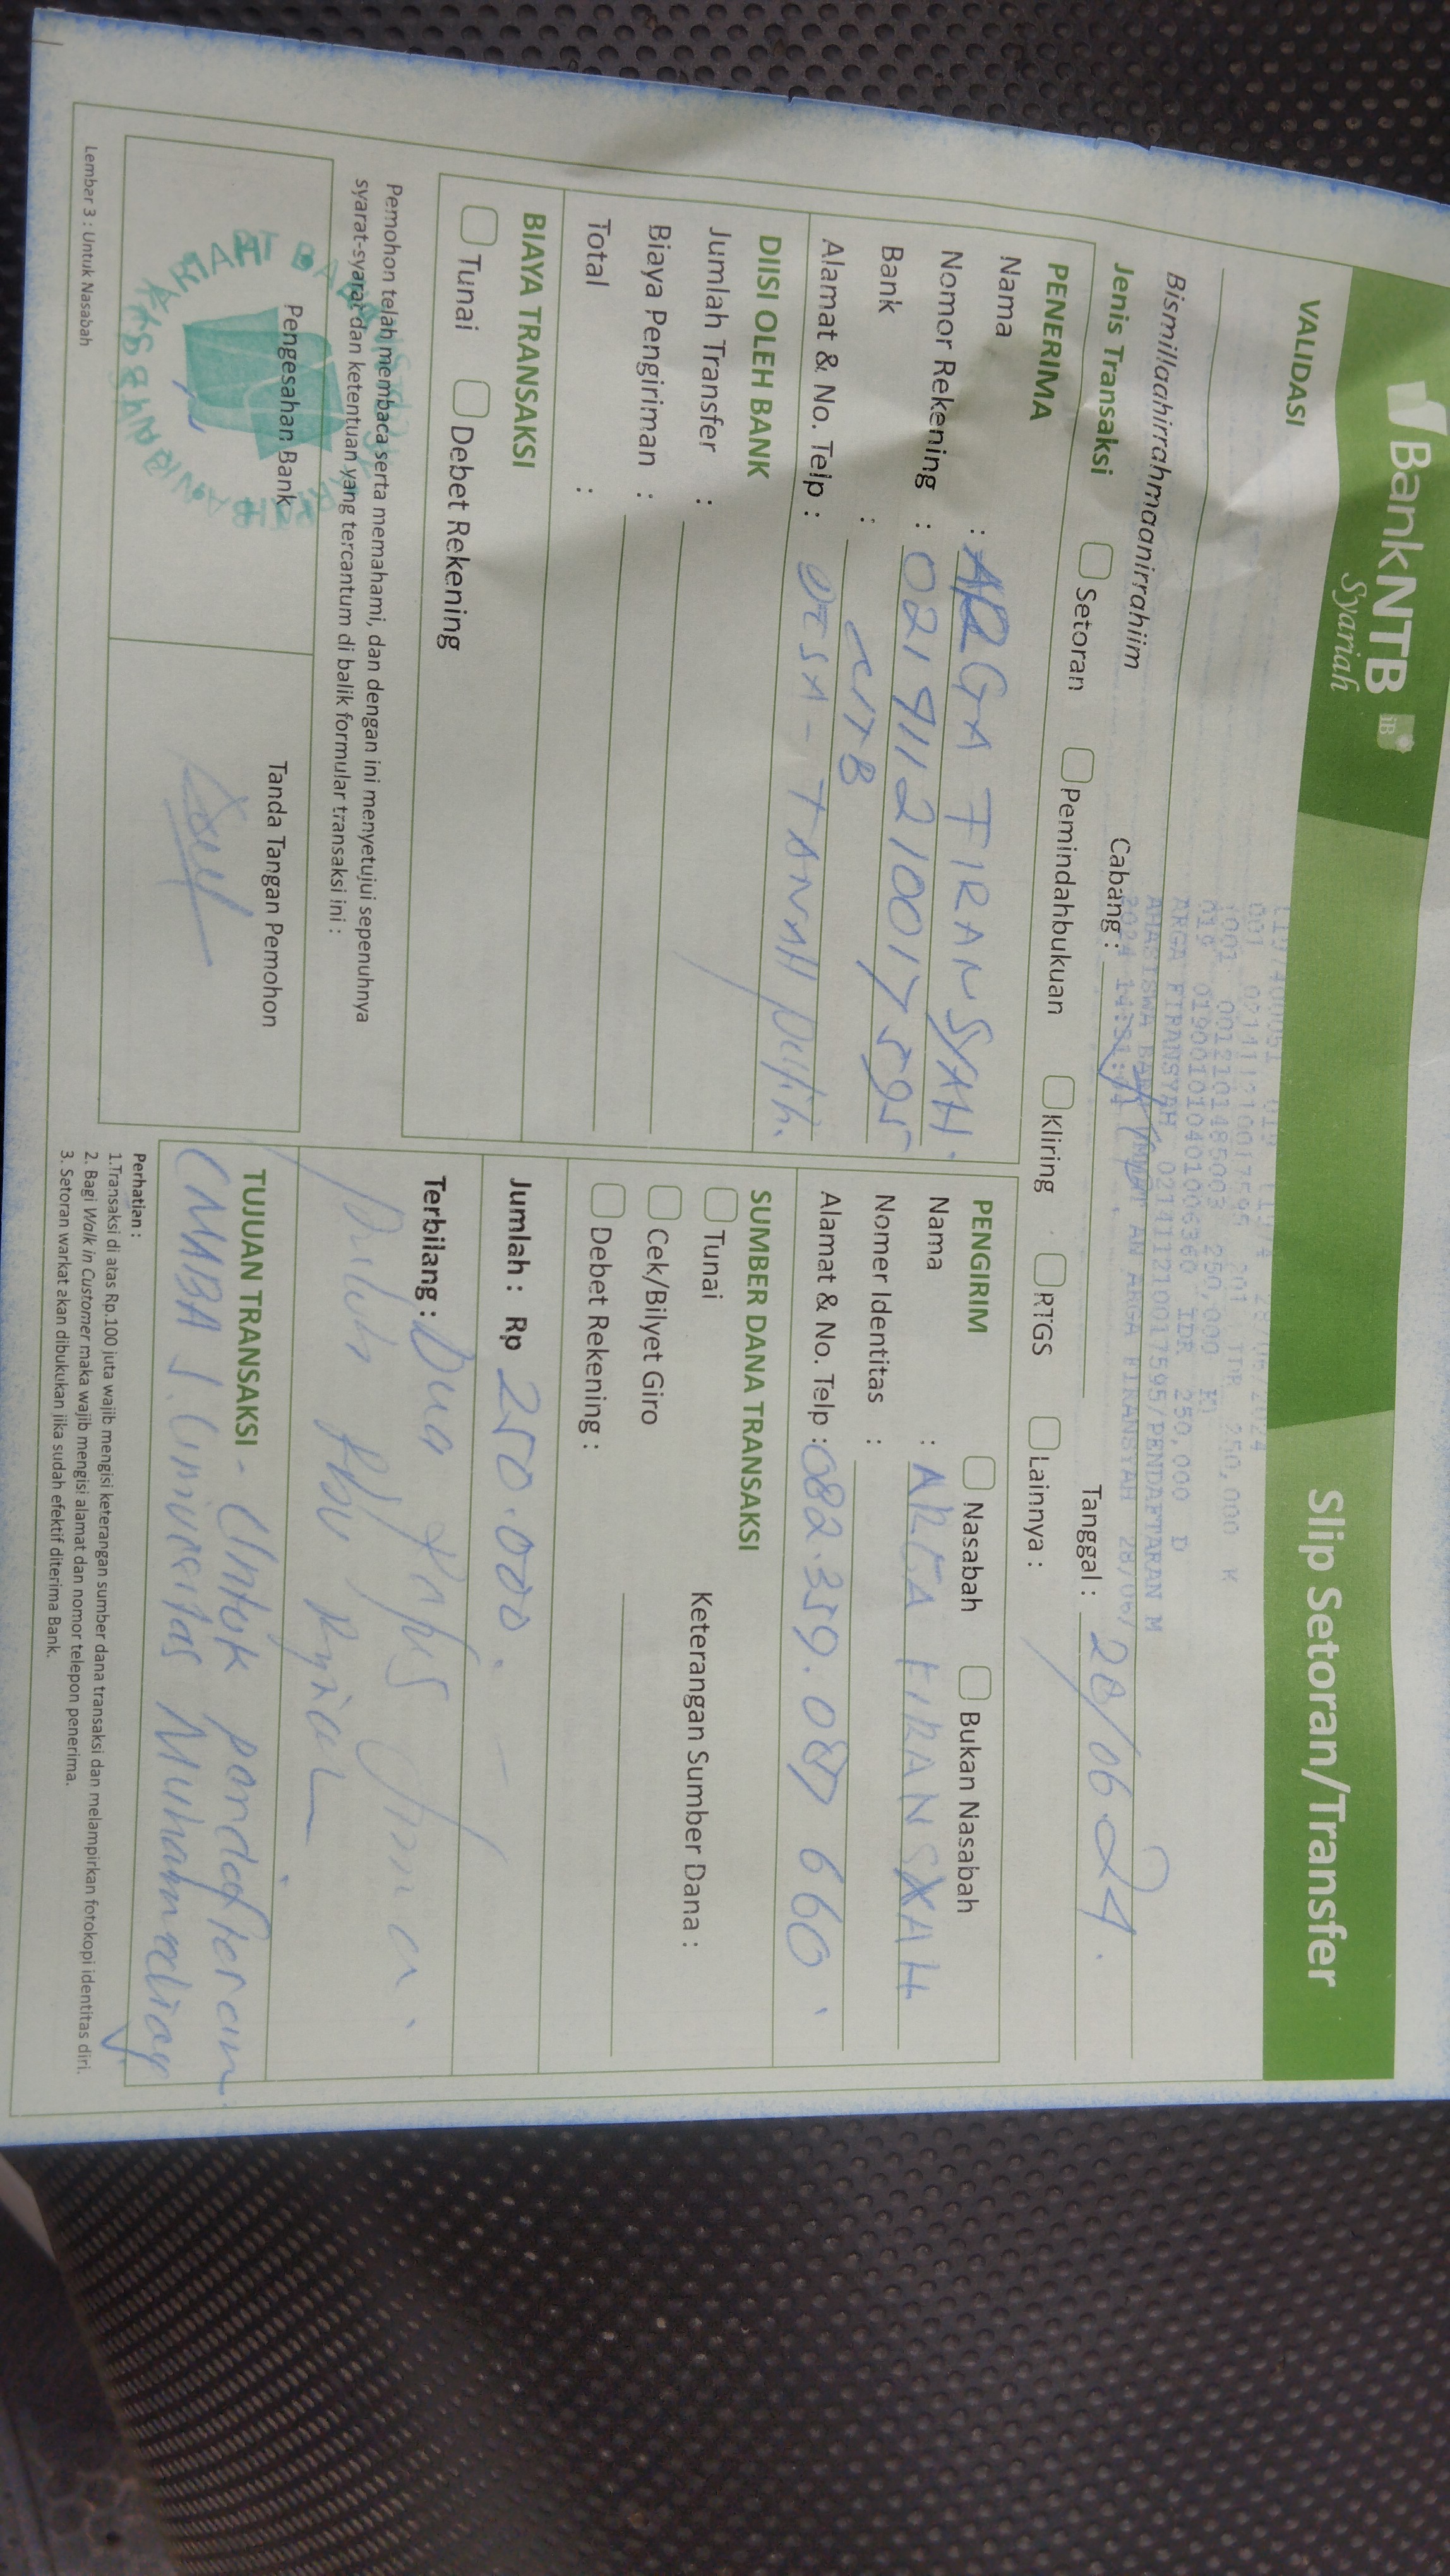 BankNTB
Syariah
iB
Slip Setoran/Transfer
VALIDASI
250,000 K
250,000
019001010401006360 IDR 250,000 D
ARGA FIRANSYAH
AN ARGA FIRANSYAH 28/06/
Bismillaahirrahmaanirrahiim
Cabang :
Tanggal : 28/06 24.
Jenis Transaksi
Setoran
Pemindahbukuan
Kliring
RTGS
Lainnya :
PENERIMA
Nama : ARGA FIRANSYAH.
Nomor Rekening :
Bank : NTB
Alamat & No. Telp : DESA - TANAH putih.
PENGIRIM
Nasabah
Bukan Nasabah
Nama : ARGA FIRANSYAH
Nomer Identitas :
Alamat & No. Telp : 082.359.087 660
DIISI OLEH BANK
Jumlah Transfer :
Biaya Pengiriman :
Total :
SUMBER DANA TRANSAKSI
Tunai
Keterangan Sumber Dana :
Cek/Bilyet Giro
Debet Rekening :
BIAYA TRANSAKSI
Tunai
Debet Rekening
Jumlah : Rp 250.000
Terbilang : Dua
Puluh Ribu Rupiah
Pemohon telah membaca serta memahami, dan dengan ini menyetujui sepenuhnya
syarat-syarat dan ketentuan yang tercantum di balik formular transaksi ini :
Pengesahan Bank
Tanda Tangan Pemohon
TUJUAN TRANSAKSI - Untuk pendaftaran
CMABA Universitas Muhammadiay
Lembar 3 : Untuk Nasabah
Perhatian :
1.Transaksi di atas Rp.100 juta wajib mengisi keterangan sumber dana transaksi dan melampirkan fotokopi identitas diri.
2. Bagi Walk in Customer maka wajib mengisi alamat dan nomor telepon penerima.
3. Setoran warkat akan dibukukan jika sudah efektif diterima Bank.